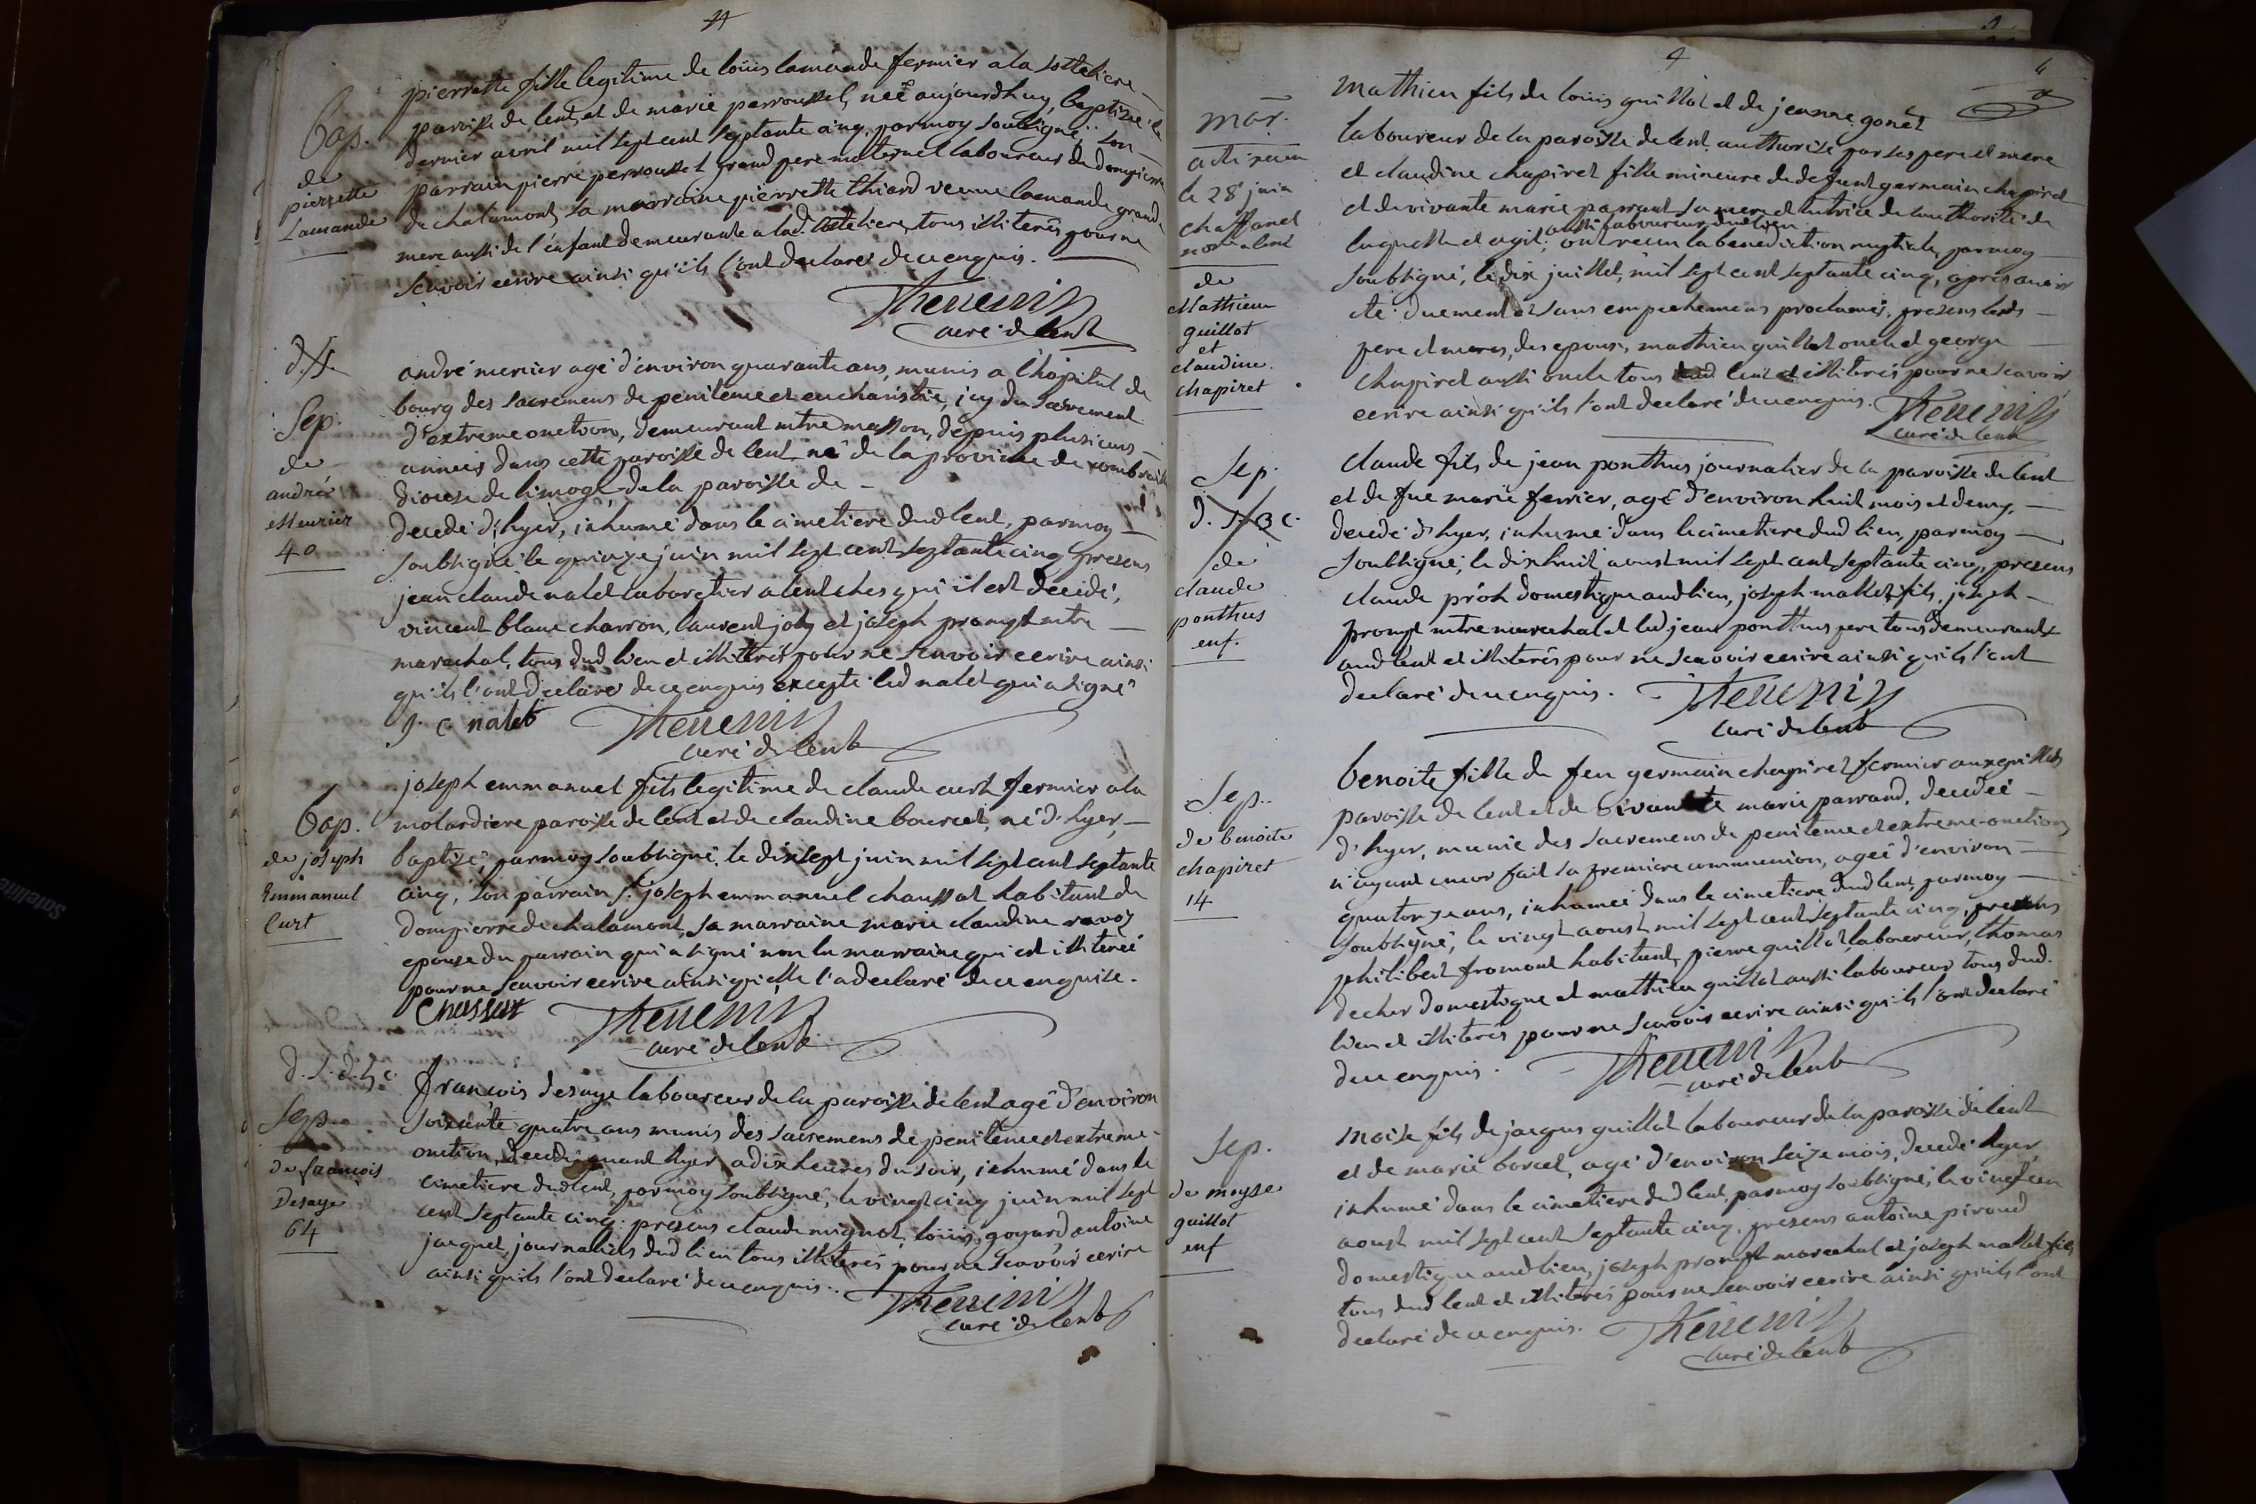 Bap.
de
pierrette
Lamande
pierrette fille legitime de loüis lamande fermier a la sotteliere
paroisse de lent et de marie perroussel, neë aujourdhuy, baptizeé le
dernier avril mil sept cent septante cinq, par moy soubsigné. son
parrain pierre perroussel grand pere maternel laboureur de dompierre
de chalamont, sa marraine pierrette thiard veuve lamande grand
mere aussi de l'enfant demeurante a lad. sotteliere, tous illiterés pour ne
scavoir ecrire ainsi qu'ils l'ont declaré de ce enquis.
Thevenin
curé de lent
Sep.
de
andré
Meunier
40
andré menier agé d'environ quarante ans, munis a l'hôpital de
bourg des sacremens de penitence et eucharistie, icy du sacrement
d'extreme onction, demeurant mtre masson, depuis plusieurs
années dans cette paroisse de lent né de la province de
diocese de limoge de la paroisse de -
decedé d'hyer, inhumé dans le cimetiere dud lent, par moy
soubsigné le quinze juin mil sept cent septante cinq presens
jean claude nalet cabaretier a lent ches qui il est decedé,
vincent blanc charron, laurent joly et joseph prompt mtre
marechal, tous dud lieu et illitterés pour ne scavoir ecrire ainsi
qu'ils l'ont declaré de ce enquis excepté led nalet qui a signé
j. c nalet
Thevenin
curé de lent
Bap.
de joseph
Emmanuel
Curt
joseph emmanuel fils legitime de claude curt fermier a la
molardiere paroisse de lent et de claudine bourcel, né d'hyer,
baptizé, par moy soubsigné, le dixsept juin mil sept cent septante
cinq, son parrain sr. joseph emmanuel chaussat habitant de
dompierre de chalamont, sa marraine marie claudine ravoy
epouse du parrain qui a signé non la marraine qui est illiterée
pour ne scavoir ecrire ainsi qu'elle l'a declaré de ce enquise.
Chassat
Thevenin
curé de lent
Sep.
de françois
Desaye
64
françois desaye laboureur de la paroisse de lent agé d'environ
soixante quatre ans munis des sacremens de penitence et extreme
onction, decedé avant hyer a dix heures du soir, inhumé dans le
cimetiere dud lent, par moy soubsigné, le vingt cinq juin mil sept
cent septante cinq: presens claude mignot, loüis goyard antoine
jacquet journaliers dud lieu tous illiterés pour ne scavoir ecrire
ainsi qu'ils l'ont declaré de ce enquis.
Thevenin
curé de lent
4
mar.
acti recu
le 28 juin
chaffanel
de
Mathieu
guillot
et
claudine
chapiret
mathieu fils de loüis guillot et de jeanne gonet
laboureur de la paroisse de lent. authorisé par ses pere et mere
et claudine chapiret fille mineure de defunt germain chapiret
et de vivante marie parrand sa mere et tutrice de l'authorité de
aussi laboureur dud lieu
laquelle elle agit; ont recu la benediction nuptiale, par moy
soubsigné, le dix juillet, mil sept cent septante cinq, apres avoir
été duement et sans empechemens proclamés, presens lesds
pere et meres, des epoux, mathieu guillot oncle et george
chapiret aussi oncle tous dud lent et illiterés pour ne scavoir
ecrire ainsi qu'ils l'ont declaré de ce enquis.
Thevenin
curé de lent
Sep.
de
claude
ponthus
enf.
claude fils de jean ponthus journalier de la paroisse de lent
et de fue marie ferrier, agé d'environ huit mois et demy,
decedé d'hyer, inhumé dans le cimetiere dud lieu, par moy
soubsigné, le dixhuit aoust mil sept cent septante cinq, presens
claude prôh domestique aud lieu, joseph mallet fils, joseph
prompt mtre marechal et led jean ponthus pere tous demeurants
aud lent et illiterés pour ne scavoir ecrire ainsi qu'ils l'ont
declaré de ce enquis.
Thevenin
curé de lent
Sep.
de benoite
chapiret
14
benoite fille de feu germain chapiret fermier aux guillots
paroisse de lent et de vivante marie parrand, decedée
d'hyer, munie des sacremens de penitence et extreme-onction
n'ayant encor fait sa premiere communion, ageé d'environ
quatorze ans, inhumeé dans le cimetiere dud lent, par moy
soubsigné, le vingt aoust mil sept cent septante cinq, presens
philibert fromont habitant, pierre guillot laboureur, thomas
decher domestique et mathieu guillot aussi laboureur tous dud.
lieu et illiterés pour ne scavoir ecrire ainsi qu'ils l'ont declaré
de ce enquis.
Thevenin
curé de lent
Sep.
de moyse
guillot
enf
moise fils de jacques guillot laboureur de la paroisse de lent
et de marie borcel, agé d'environ seize mois, decedé hyer,
inhumé dans le cimetiere dud lent, par moy soubsigné, le vingt un
aoust mil sept cent septante cinq, presens antoine piroud
domestique aud lieu, joseph prompt marechal et joseph mallet fils
tous dud lent et illiterés pour ne scavoir ecrire ainsi qu'ils l'ont
declaré de ce enquis.
Thevenin
curé de lent